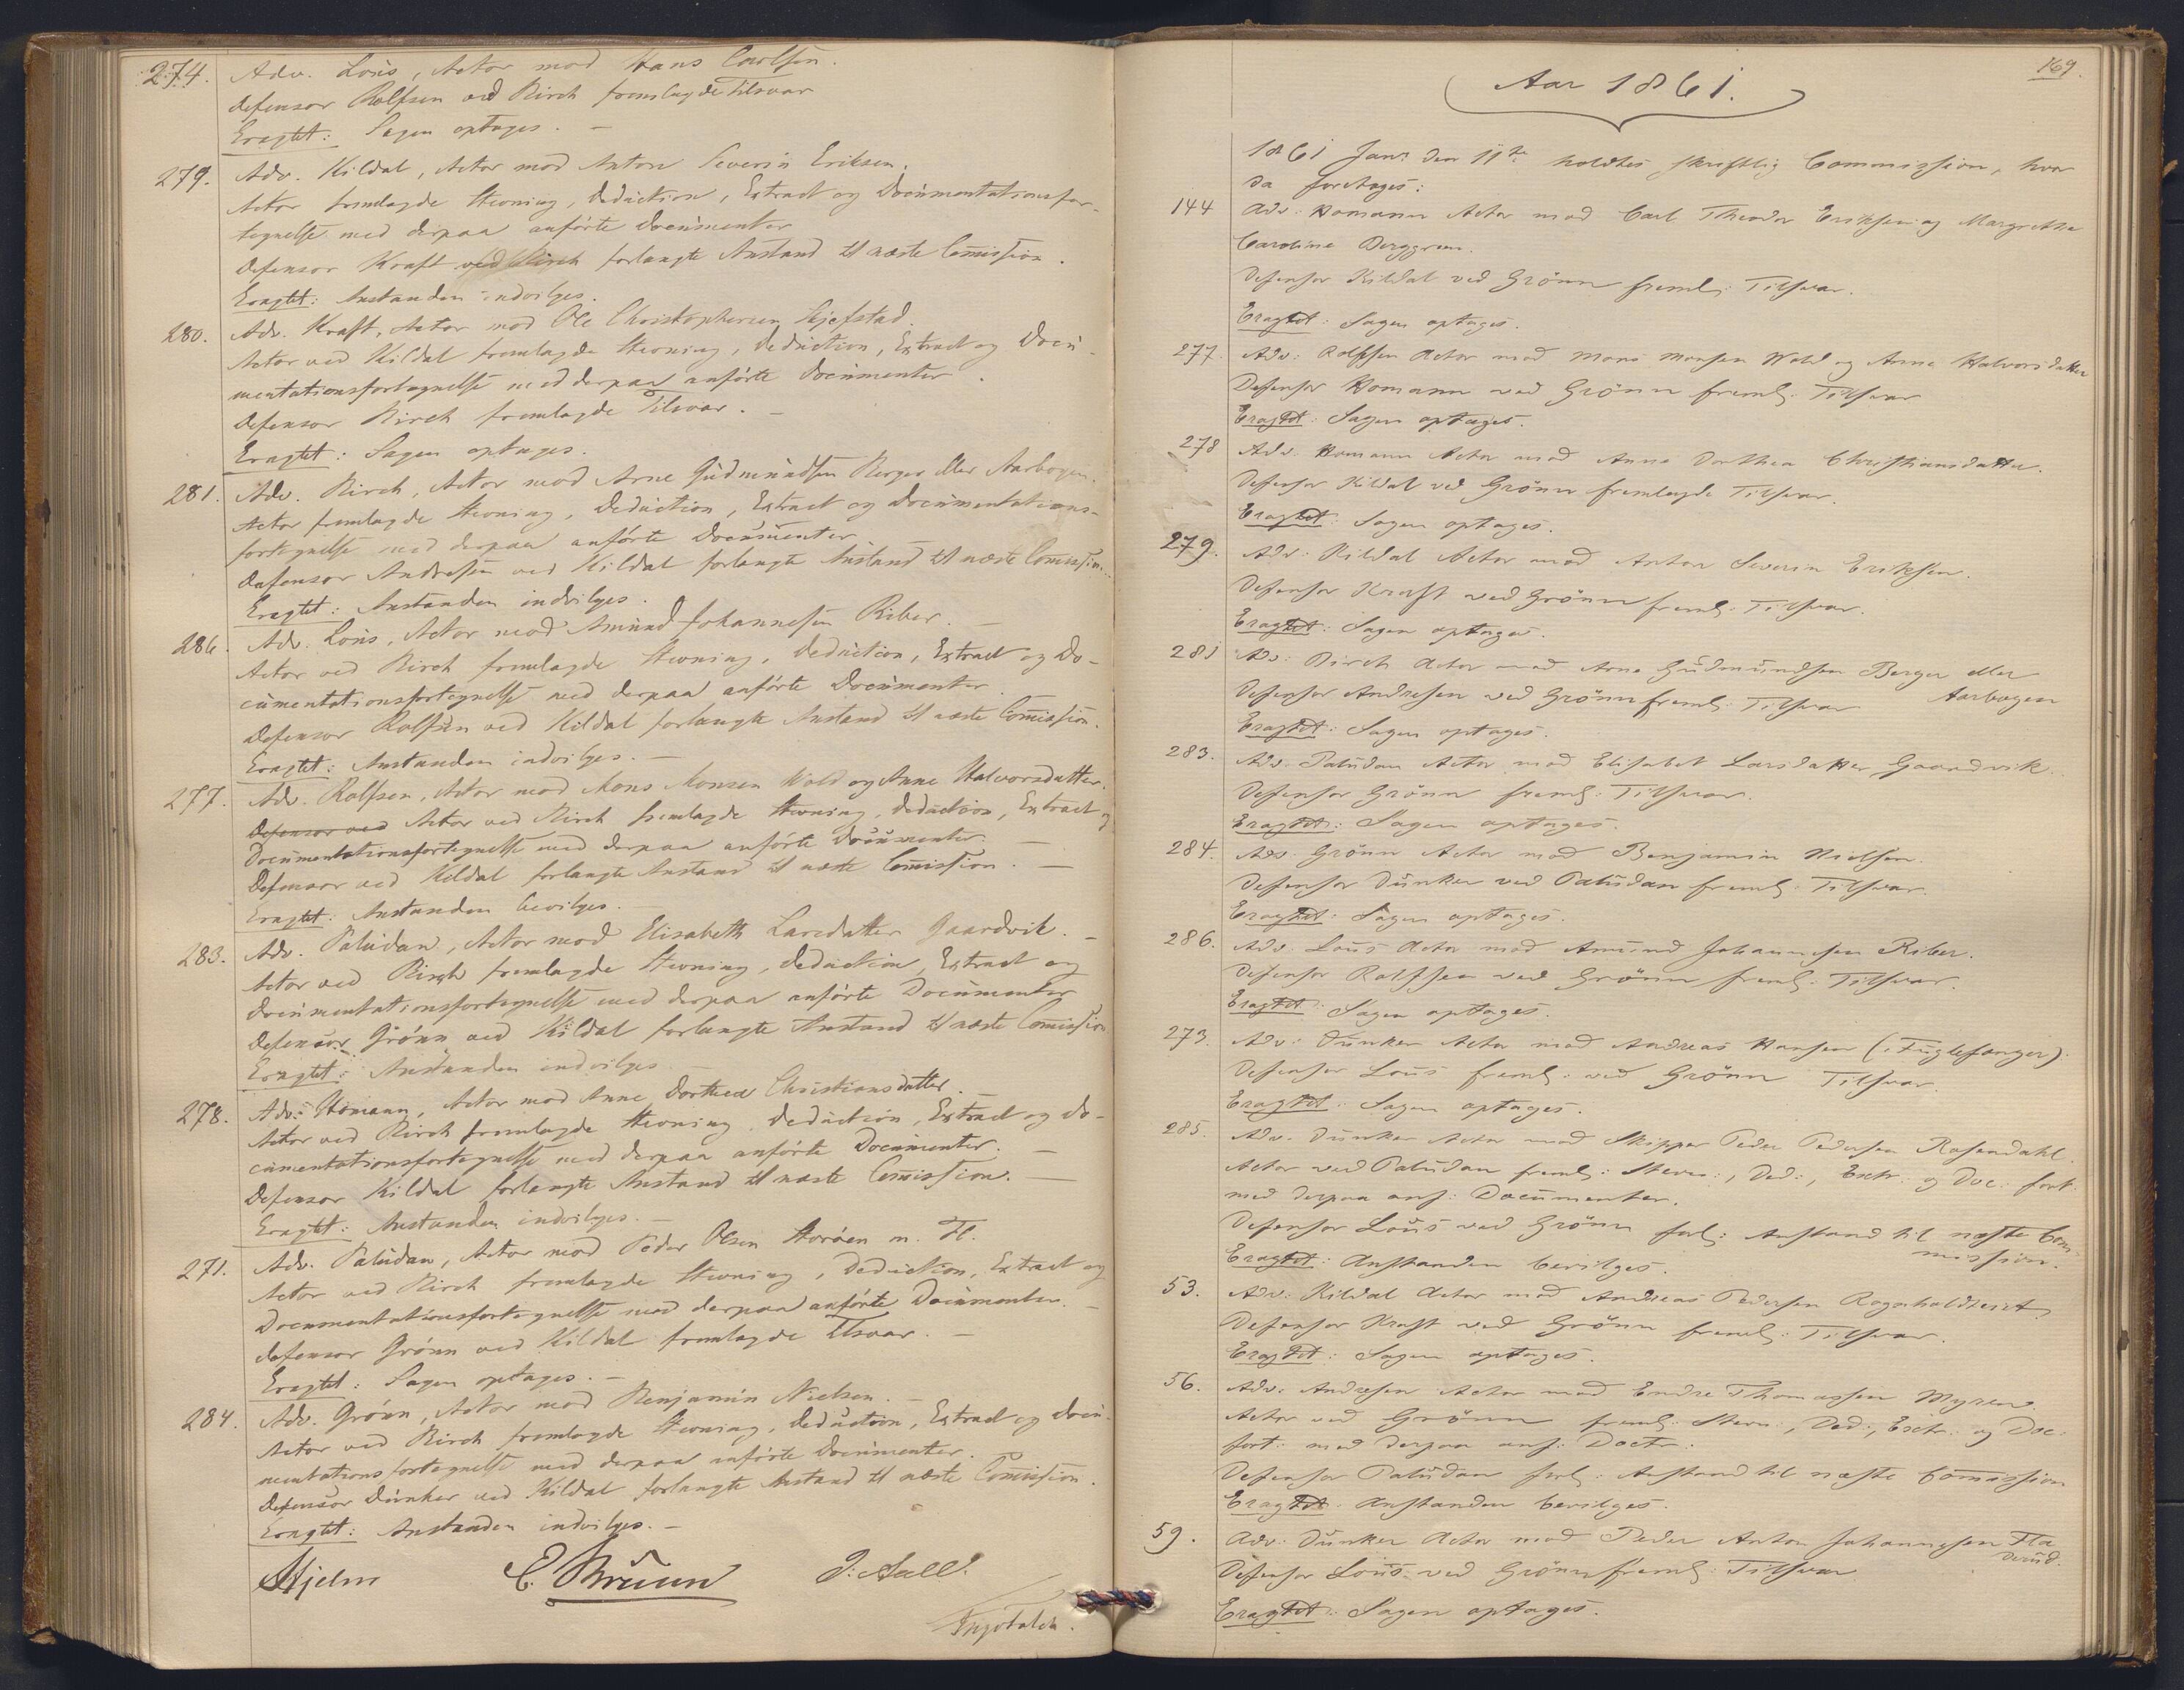 274. Adv. Loüs, Actor mod Hans Carlsen.
Defensor Rolfsen ved Birch fremlagde Tilsvar
Eragtet: Sagen optages. —
279. Adv. Kildal, Actor mod Anton Severin Eriksen.
Actor fremlagde Stevning, Deduction, Extract og Documentationsfor-
tegnelse med derpaa anførte Documenter
Defensor Kraft ved Birch forlangte Anstand til næste Comission.
Eragtet: Anstanden indvilges.
280. Adv. Kraft, Actor mod Ole Christophersen Gjefstad.
Actor ved Kildal fremlagde Stevning, Deduction, Extract og Docu-
mentationsfortegnelse med derpaa anførte Documenter.
Defensor Birch fremlagde Tilsvar. —
Eragtet: Sagen optages.
281. Adv. Birch, Actor mod Arne Gudmundsen Berger eller Aarbogen.
Actor fremlagde Stevning, Deduction, Extract og Documentations-
fortegnelse med derpaa anførte Documenter
Defensor Andresen ved Kildal forlangte Anstand til næste Comission.
Eragtet: Anstanden indvilges.
286. Adv. Loüs, Actor mod Amund Johannesen Riber. —
Actor ved Birch fremlagde Stevning, Deduction, Extract og Do-
cumentationsfortegnelse med derpaa anførte Documenter.
Defensor Rolfsen ved Kildal forlangte Anstand til næste Comission.
Eragtet: Anstanden indvilges. —
277. Adv. Rolfsen, Actor mod Mons Monsen Wold og Anne Halvorsdatter.
Defensor ved Actor ved Birch fremlagde Stevning, Deduction, Extract og
Documentationsfortegnelse med derpaa anførte Documenter. —
Defensor ved Kildal forlangte Anstand til næste Comission. —
Eragtet: Anstanden bevilges. —
283. Adv. Paludan, Actor mod Elisabeth Larsdatter Gaardvik. —
Actor ved Birch fremlagde Stevning, Deduction, Extract og
Documentationsfortegnelse med derpaa anførte Documenter
Defensor Grønn ved Kildal forlangte Anstand til næste Comission
Eragtet: Anstanden indvilges. —
278. Adv. Homann, Actor mod Anne Dorthea Christiansdatter. —
Actor ved Birch fremlagde Stevning, Deduction, Extract og Do-
cumentationsfortegnelse med derpaa anførte Documenter. —
Defensor Kildal forlangte Anstand til næste Comission. —
Eragtet: Anstanden indvilges. —
271. Adv. Paludan, Actor mod Peder Olsen Storøen m. Fl.
Actor ved Birch fremlagde Stevning, Deduction, Extract og
Documentationsfortegnelse med derpaa anførte Documenter. —
Defensor Grønn ved Kildal fremlagde Tilsvar. —
Eragtet: Sagen optages. —
284. Adv. Grønn, Actor mod Benjamin Nielsen. —
Actor ved Birch fremlagde Stevning, Deduction, Extract og Docu-
mentationsfortegnelse med derpaa anførte Documenter.
Defensor Dunker ved Kildal forlangte Anstand til næste Comission.
Eragtet: Anstanden indvilges. —
Hjelm E. Bruun J. Aall.
169.
Aar 1861.
1861 Janr den 11te holdtes skriftlig Commission, hvor
da foretages:
144 Adv: Homann Actor mod Carl Theodor Eriksen og Margrethe
Caroline Berggren.
Defensor Kildal ved Grönn freml: Tilsvar.
Eragtet: Sagen optages.
277. Adv: Rolfsen Actor mod Mons Monsen Wold og Anne Halvorsdatter
Defensor Homann ved Grönn freml: Tilsvar
Eragtet: Sagen optages.
278 Adv. Homann Actor mod Anne Dorthea Christiansdatter.
Defensor Kildal ved Grönn fremlagde Tilsvar.
Eragtet: Sagen optages.
279. Adv: Kildal Actor mod Anton Severin Eriksen.
Defensor Kraft ved Grönn freml: Tilsvar.
Eragtet: Sagen optages.
281 Adv: Birch Actor mod Arne Gudmundsen Berger eller
Aarbogen
Defensor Andresen ved Grönn freml: Tilsvar
Eragtet: Sagen optages.
283. Adv. Paludan Actor mod Elisabet Larsdatter Gaardvik.
Defensor Grönn freml: Tilsvar.
Eragtet: Sagen optages.
284. Adv. Grönn Actor mod Benjamin Nielsen.
Defensor Dunker ved Paludan freml: Tilsvar.
Eragtet: Sagen optages.
286. Adv. Loüs Actor mod Amund Johannesen Riber.
Defensor Rolfsen ved Grönn freml: Tilsvar.
Eragtet: Sagen optages.
273. Adv: Dunker Actor mod Andreas Hansen (Fuglefanger).
Defensor Loüs freml: ved Grönn Tilsvar.
Eragtet: Sagen optages.
285. Adv. Dunker Actor mod Skipper Peder Pedersen Rosendahl.
Actor ved Paludan freml: Stevn:, Ded:, Extr: og Doc: fort:
med derpaa anf: Documenter.
Defensor Loüs ved Grönn forl: Anstand til næste Com-
mission.
Eragtet: Anstanden bevilges.
53. Adv: Kildal Actor mod Andreas Pedersen
Defensor Kraft ved Grönn freml: Tilsvar.
Eragtet: Sagen optages.
56. Adv: Andresen Actor mod Endre Thomassen Myren
Actor ved Grönn freml: Stevn:, Ded:, Extr: og Doc:
fort: med derpaa anf: Doctr.
Defensor Paludan forl: Anstand til næste Commission
Eragtet: Anstanden bevilges.
59. Adv: Dunker Actor mod Peder Anton Johannesen Fla
derud.
Defensor Loüs ved Grönn freml: Tilsvar
Eragtet: Sagen optages.